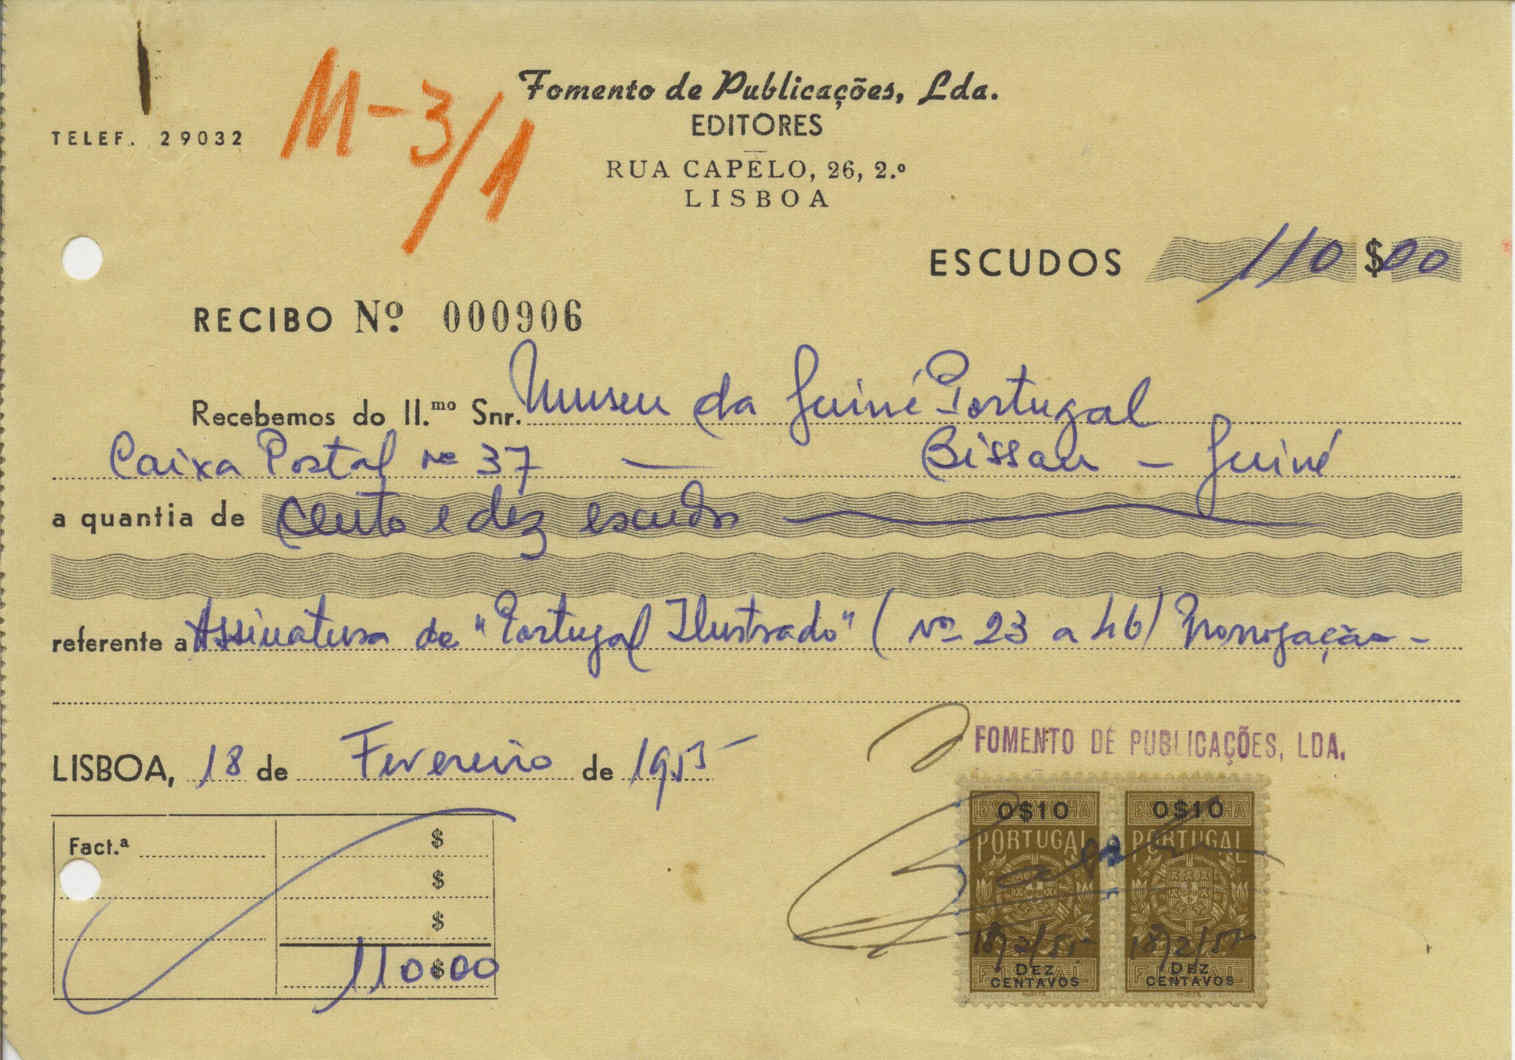 M-3/1
Fomento de Publicações, Lda.
EDITORES
TELEF. 29032
RUA CAPELO, 26, 2.º
LISBOA
ESCUDOS 110$00
RECIBO Nº 000906
Recebemos do Il.mo Snr. Museu da Guiné Portugal
Caixa Postal nº 37 — Bissau - Guiné
a quantia de Cento e dez escudos
referente a Assinatura de "Portugal Ilustrado" (nº 23 a 46) Prorrogação -
LISBOA, 18 de Fevereiro de 1955
FOMENTO DE PUBLICAÇÕES, LDA.
Fact.ª $
$
$
110$00
0$10 0$10
PORTUGAL PORTUGAL
18/2/55 18/2/55
DEZ CENTAVOS DEZ CENTAVOS